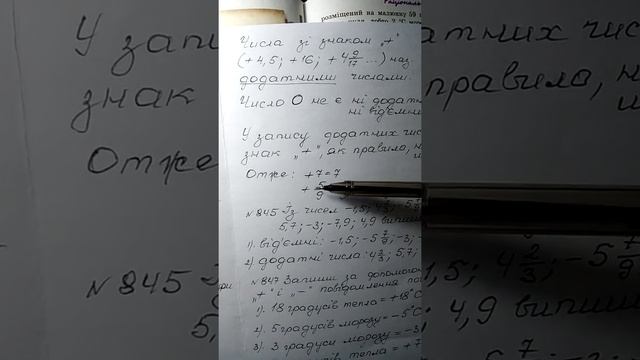 розміщений на малюнку 59
Числа зі знаком „+"
(+4,5; +16; +4 9/17 ...) наз
додатними числами.
Число 0 не є ні додатн
ні від'ємни
У запису додатних чис
знак „+", як правило, н
Отже: +7=7
+5/9
№845 Із чисел -1,5; 4 2/3; -5 7/9
5,7; -3; -7,9; 4,9 випиш
1). від'ємні: -1,5; -5 7/9; -3; -
2). додатні числа: 4 2/3; 5,7;
№847 Запиши за допомогою
„+" і „-" повідомлення про
1). 18 градусів тепла = +18°C
2). 5 градусів морозу = -5°C
3). 3 градуси морозу = -3
градусів тепла = +7